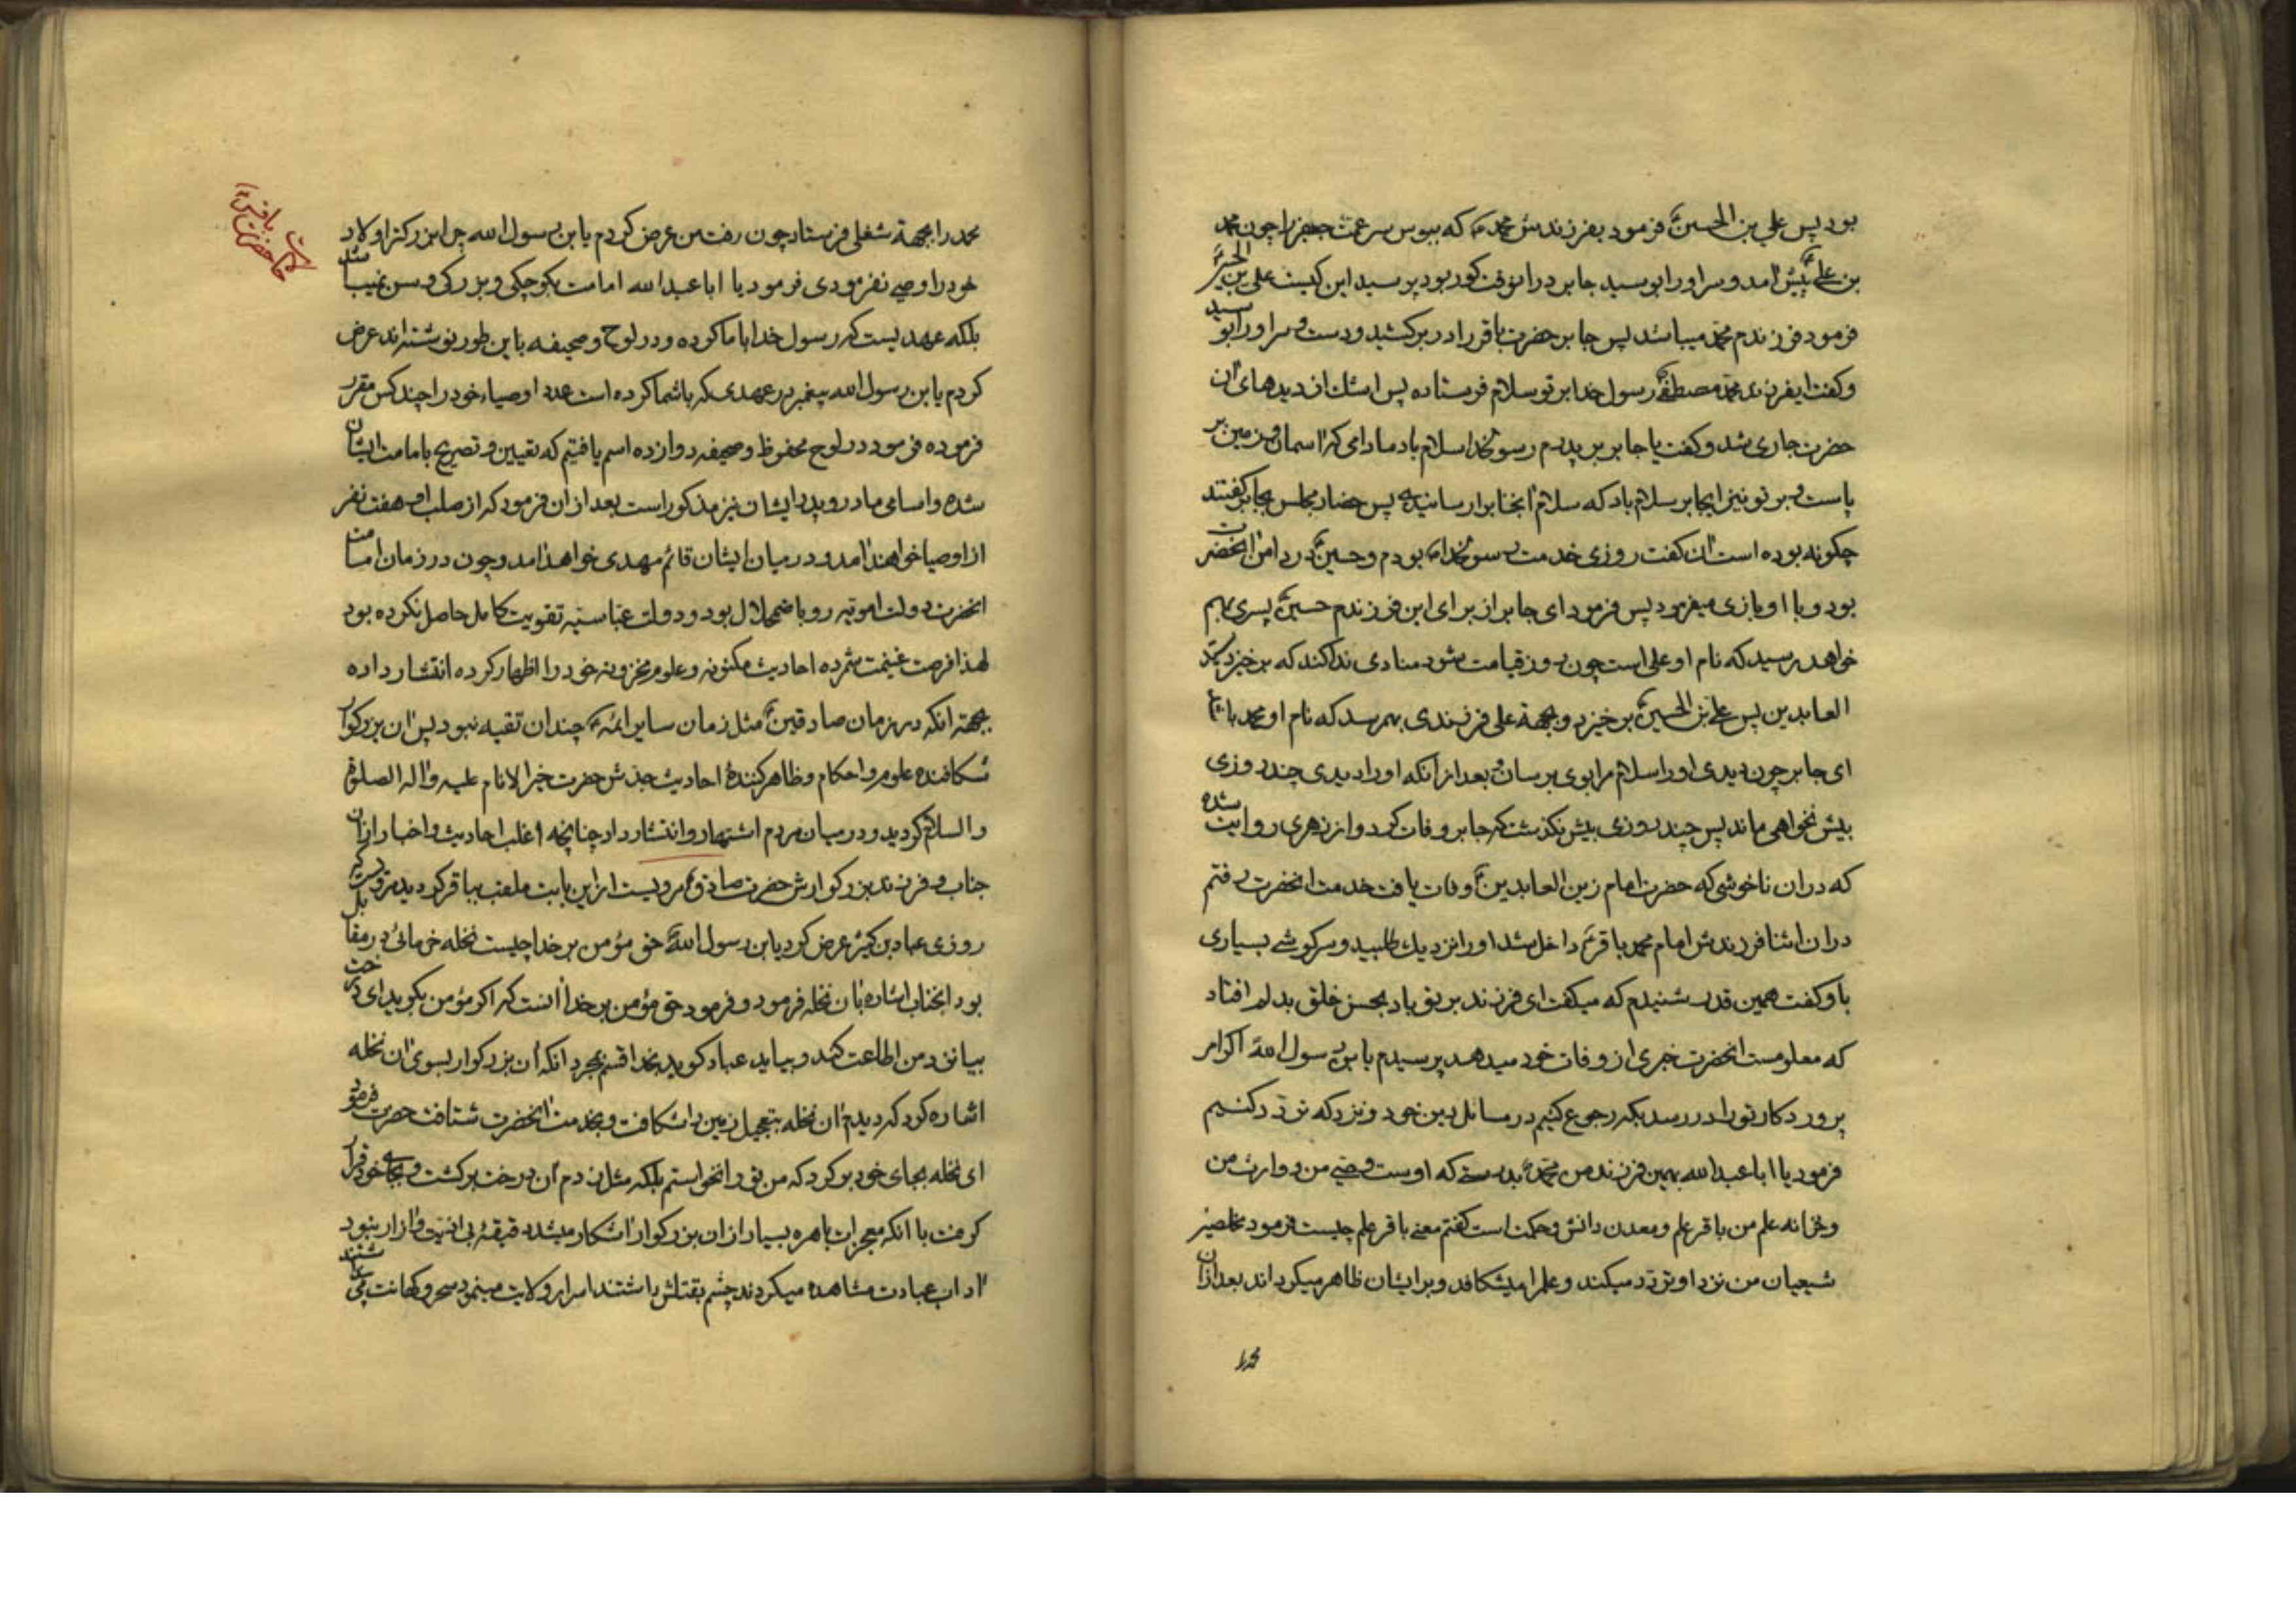 بود پس علی بن الحسین ع فرمود بفرزندش محمد ع که ببوس سر عمت جعفر را چون محمد
بن علی ع پیش آمد و سر او را بوسید جابر در آنوقت کور بود پرسید این کیست علی بن الحسین ع
فرمود فرزندم محمد میباشد پس جابر حضرت باقر را در بر کشید و دست و سر او را بوسید
و گفت ایفرزند محمد مصطفی رسول خدا بر تو سلام فرستاده پس اشک از دیدهای آن
حضرت جاری شد و گفت یا جابر بر پدرم رسولخدا سلام باد مادامی که آسمان و زمین بر
پاست و بر تو نیز ایجابر سلام باد که سلام آنجناب را رسانیدی پس حضار مجلس بجابر گفتند
چگونه بوده است آن گفت روزی خدمت رسولخدا بودم و حسین ع در دامن آنحضرت
بود و با او بازی میفرمود پس فرمود ای جابر از برای این فرزندم حسین ع پسری بهم
خواهد رسید که نام او علی است چون روز قیامت شود منادی ندا کند که برخیزد سید
العابدین پس علی بن الحسین ع برخیزد و بجهة علی فرزندی بهم رسد که نام او محمد باشد
ای جابر چون دیدی او را سلام مرا بوی برسان و بعد از آنکه او را دیدی چند روزی
بیش نخواهی ماند پس چند روزی بیش نگذشت که جابر وفات کرد و از زهری روایت شده
که در آن ناخوشی که حضرت امام زین العابدین ع وفات یافت خدمت آنحضرت رفتم
در آن اثنا فرزندش امام محمد باقر ع داخل شد او را نزدیک طلبید و سرگوشی بسیاری
باو گفت همین قدر شنیدم که میگفت ای فرزند بر تو باد بحسن خلق بدلم افتاد
که معلومست آنحضرت خبری از وفات خود میدهد پرسیدم یا بن رسول الله اگر امر
پروردگار تو را در رسد بکه رجوع کنیم در مسائل دین خود و نزد که تردد کنیم
فرمود یا ابا عبدالله بهمین فرزند من محمد بدرستی که اوست وصی من و وارث من
و خزانه علم من باقر علم و معدن دانش و حکمت است گفتم معنی باقر علم چیست فرمود مخلصین
شیعیان من نزد او تردد میکند و علم را میشکافد و بر ایشان ظاهر میگرداند بعد از آن
محمد را
محمد را بجهة شغلی فرستاد چون رفت من عرض کردم یا بن رسول الله چرا بزرگتر اولاد
خود را وصی نفرمودی فرمود یا ابا عبدالله امامت بکوچکی و بزرگی و سن نمیباشد
بلکه عهدیست که رسول خدا با ما کرده و در لوح و صحیفه باین طور نوشته‌اند عرض
کردم یا بن رسول الله پیغمبر در عهدی که با شما کرده است عدد اوصیاء خود را چند کس مقرر
فرموده فرمود در لوح محفوظ و صحیفه دوازده اسم یافتیم که تعیین و تصریح بامامت ایشان
شده و اسامی مادر و پدر ایشان نیز مذکور است بعد از آن فرمود که از صلب او هفت نفر
از اوصیا خواهند آمد و در میان ایشان قائم مهدی خواهد آمد و چون در زمان امامت
آنحضرت دولت امویه رو باضمحلال بود و دولت عباسیه تقویت کامل حاصل نکرده بود
لهذا فرصت غنیمت شمرده احادیث مکنونه و علوم مخزونه خود را اظهار کرده انتشار داده
بجهته آنکه در زمان صادقین ع مثل زمان سایر ائمه ع چندان تقیه نبود پس آن بزرگوار
شکافنده علوم و احکام و ظاهر کنندۀ احادیث جدش حضرت خیر الانام علیه و آله الصلوة
و السلام گردید و در میان مردم اشتهار و انتشار داد چنانچه اغلب احادیث و اخبار از آن
جناب و فرزند بزرگوارش حضرت صادق ع مرویست از این بابت ملقب بباقر گردید مرویست که
روزی عباد بن کثیر عرض کرد یا بن رسول الله حق مؤمن بر خدا چیست نخله خرمائی در مقابل
بود آنجناب اشاره بآن نخله فرمود و فرمود حق مؤمن بر خدا آنست که اگر مؤمن بگوید ای درخت
بیا نزد من اطاعت کند و بیاید عباد گوید بخدا قسم بمجرد آنکه آن بزرگوار بسوی آن نخله
اشاره کرد که دیدم آن نخله بتعجیل زمین را شکافت و بخدمت آنحضرت شتافت حضرت فرمود
ای نخله بجای خود برگرد که من تو را نخواستم بلکه مثل زدم آن درخت برگشت و بجای خود قرار
گرفت با آنکه معجزات باهره بسیار از آن بزرگوار آشکار میشد دقیقۀ بی اذیت و آزار نبود
آداب عبادت مشاهده میکردند چشم بقتلش داشتند اسرار ولایت مینمود سحر و کهانت می
حضرت باقر